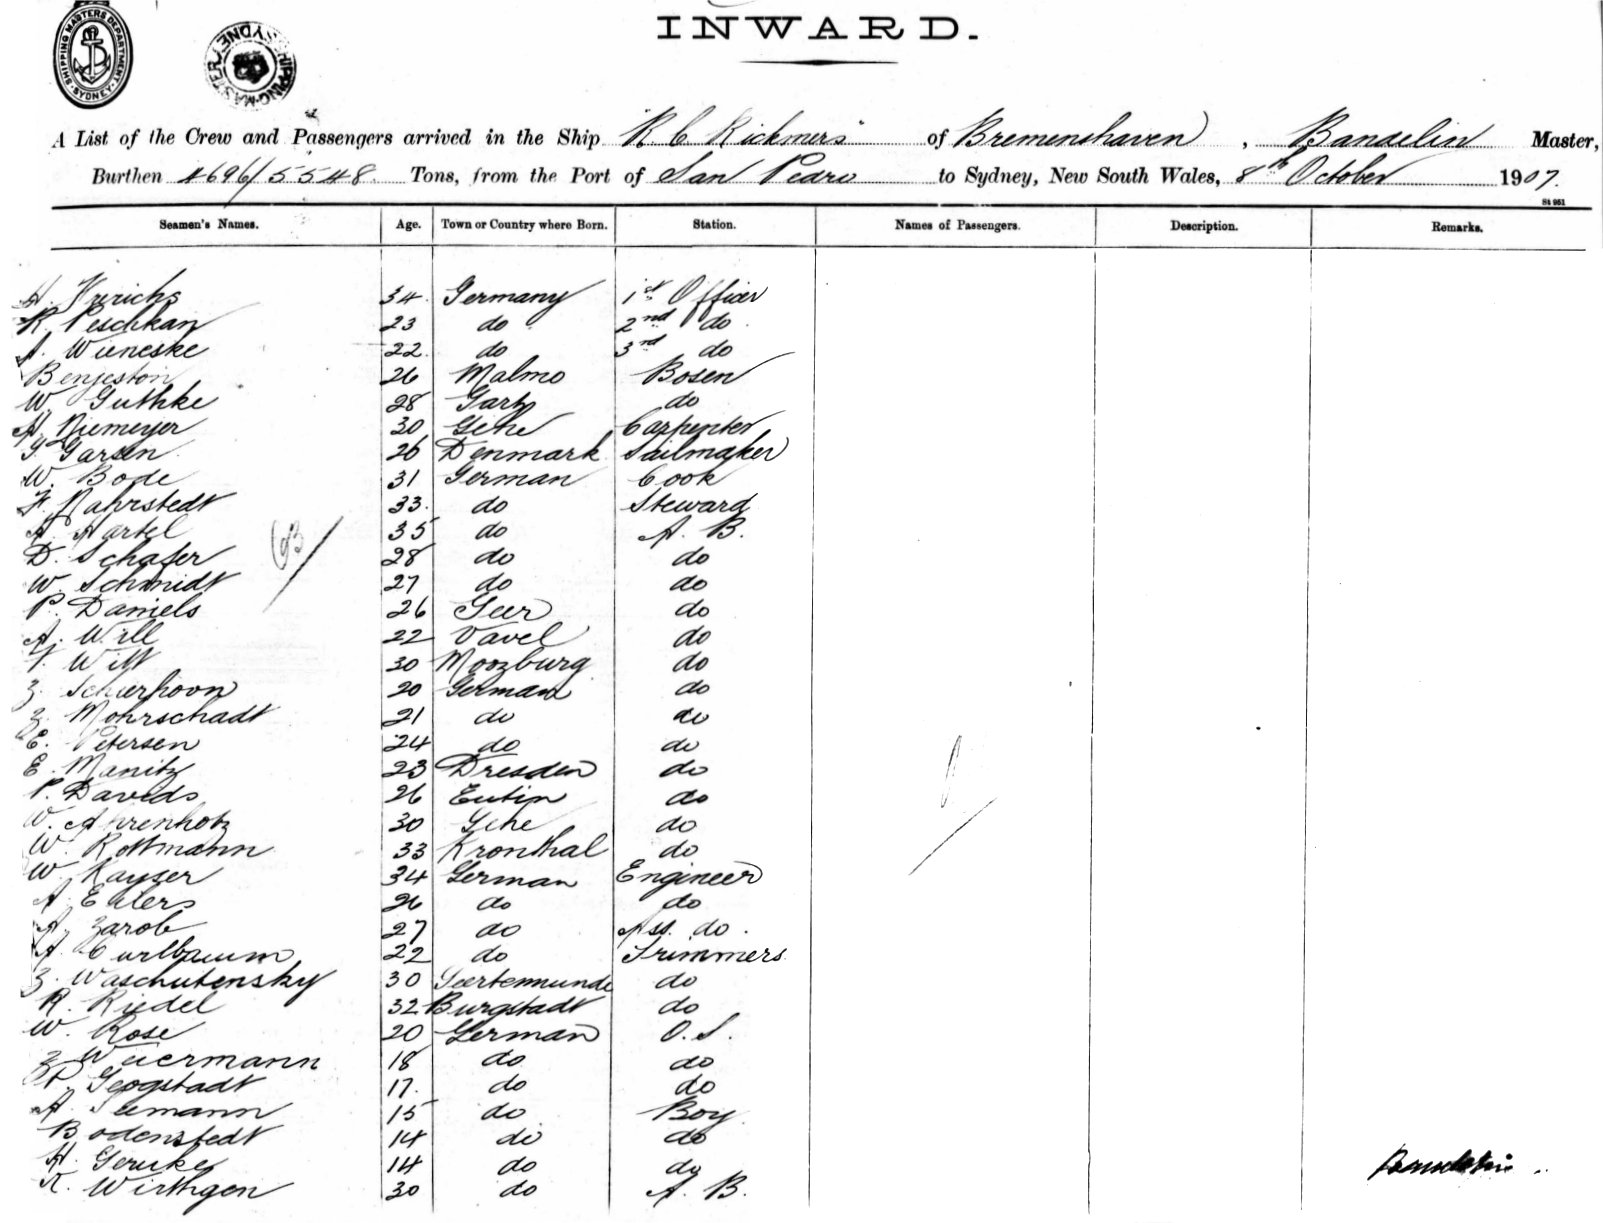 SHIPPING MASTERS DEPARTMENT SYDNEY
SHIPPING MASTER SYDNEY
INWARD.
A List of the Crew and Passengers arrived in the Ship R. C. Rickmers of Bremenshaven, Bandelin Master,
Burthen 4696/5548 Tons, from the Port of San Pedro to Sydney, New South Wales, 8th October 1907.
St 951
Seamen's Names. Age. Town or Country where Born. Station. Names of Passengers. Description. Remarks.
34 Germany 1st Officer
R. Peschkan 23 do 2nd do
A. Wieneske 22 do 3rd do
Benjeston 26 Malmo Bosen
W Guthke 28 Gartz do
H. Niemeyer 30 Carpenter
Garsen 26 Denmark Sailmaker
W. Bode 31 German Cook
F. Nahrstedt 33. do Steward
A Hartel 35 do A. B.
D. Schafer 28 do do
W. Schmidt 27 do do
P. Daniels 26 do
A. Will 22 Vavel do
Witt 30 Moozburg do
Schierhoon 20 German do
Mohrschadt 21 do do
E. Petersen 24 do do
E. Manitz 23 Dresden do
P. Davids 26 Eutin do
W. Ahrenhotz 30 do
W. Rottmann 33 Kronthal do
W Kayser 34 German Engineer
A. Ehlers 26 do do
A. Zarob 27 do Ass. do.
A. Curlbaum 22 do Trimmers
Z. Waschutensky 30 do
R. Riedel 32 Burgstadt do
W. Rose 20 German O. S.
18 do do
17. do do
A. Seemann 15 do Boy
Bodenstedt 14 do do
H. Gericke 14 do do
K. Wirthgen 30 do A. B.